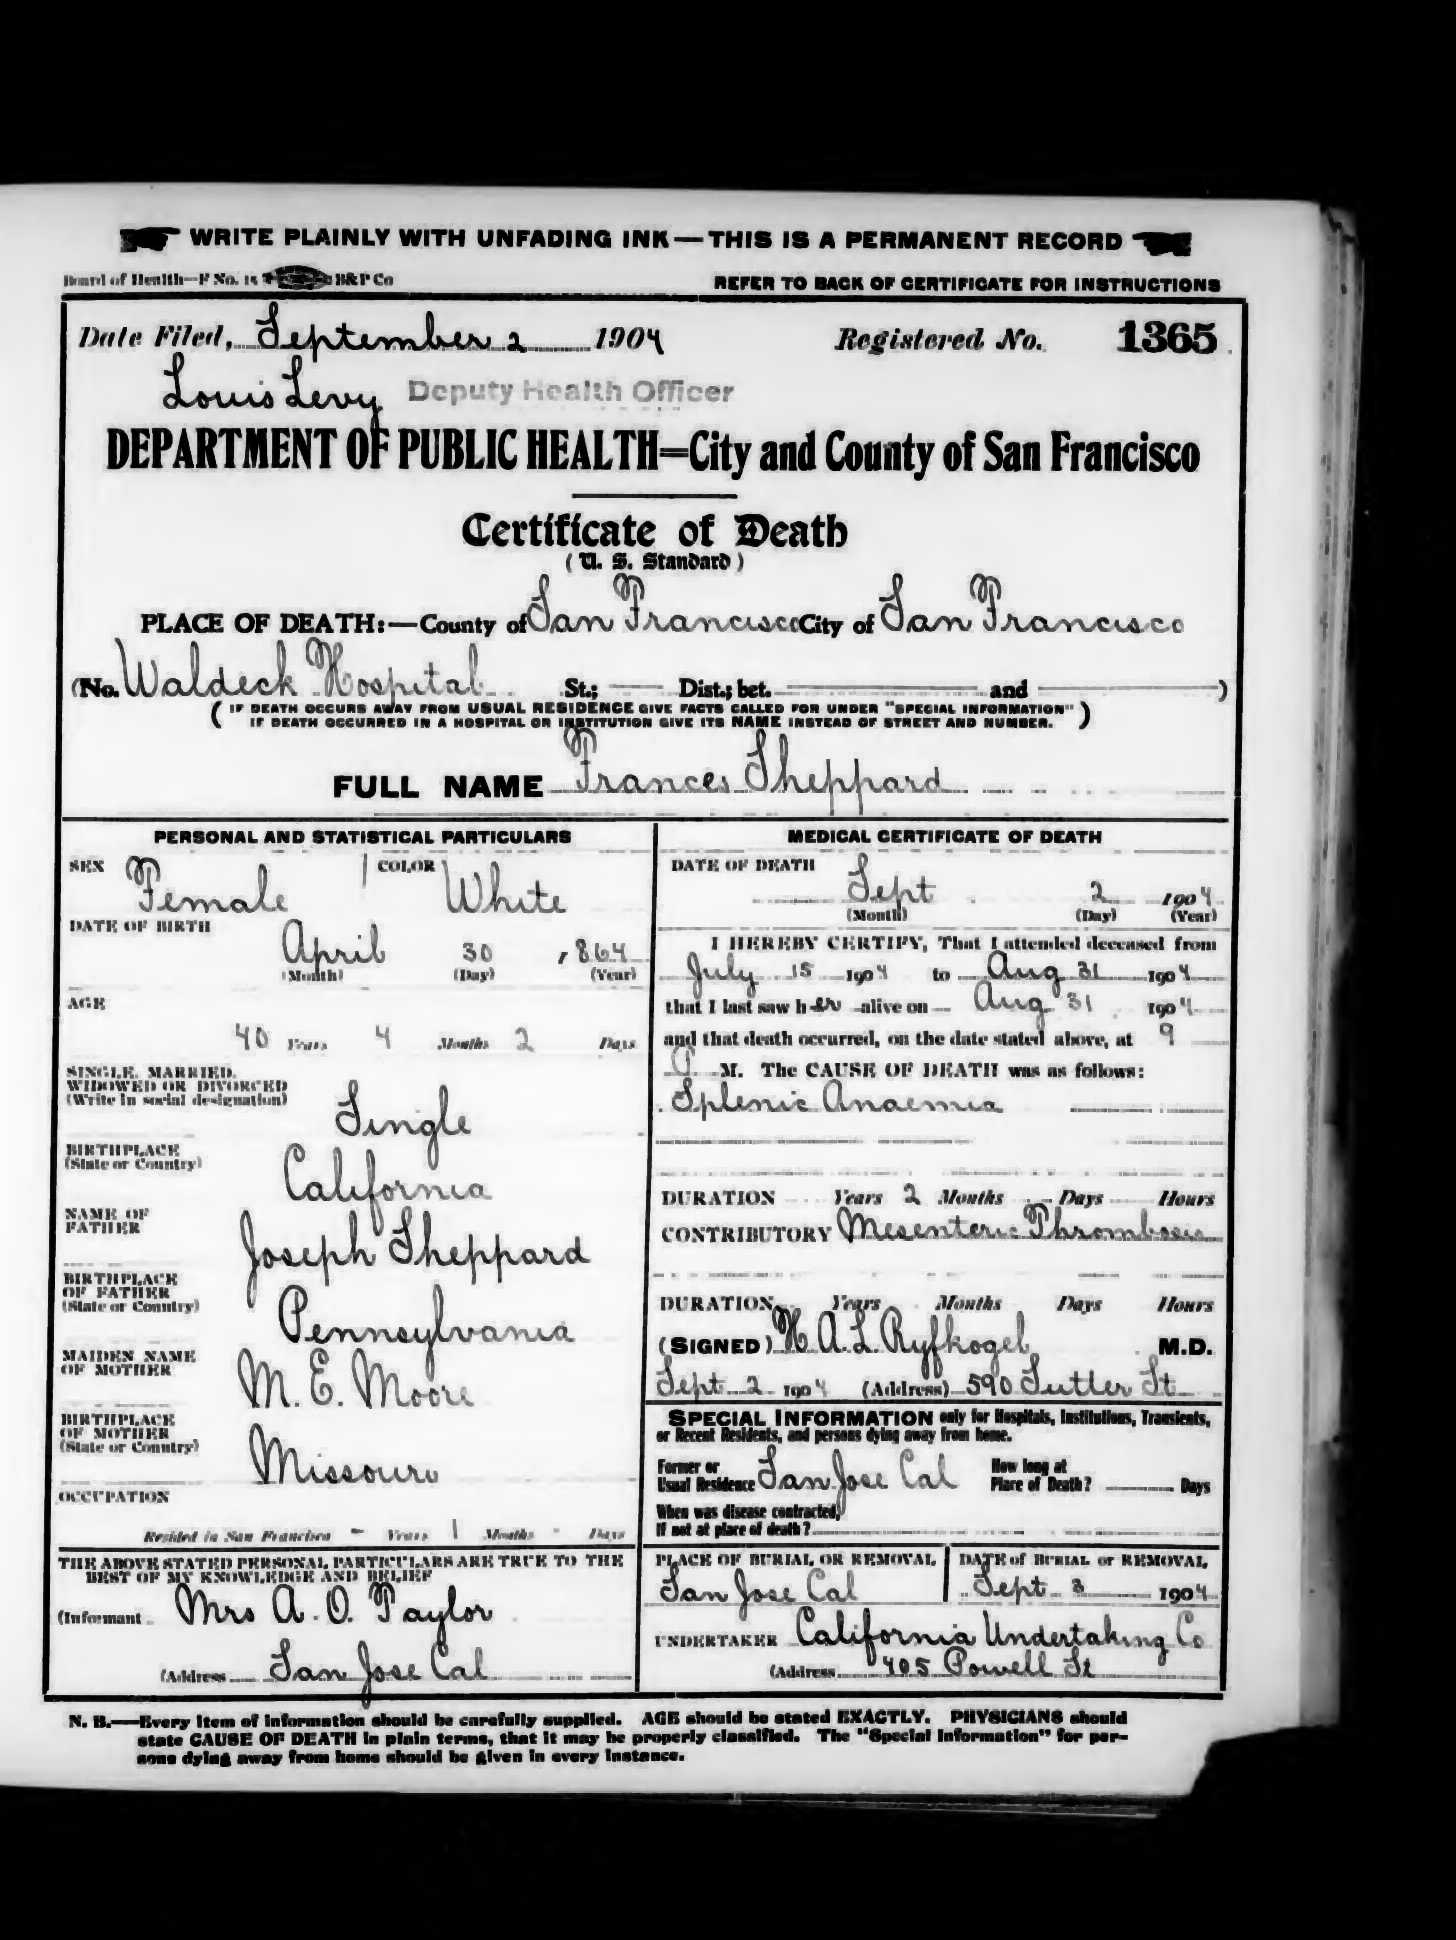 WRITE PLAINLY WITH UNFADING INK—THIS IS A PERMANENT RECORD
Board of Health—F No. 15 B&P Co REFER TO BACK OF CERTIFICATE FOR INSTRUCTIONS
Date Filed, September 2 1904 Registered No. 1365
Louis Levy Deputy Health Officer
DEPARTMENT OF PUBLIC HEALTH=City and County of San Francisco
Certificate of Death
(U. S. Standard)
PLACE OF DEATH:—County of San Francisco City of San Francisco
(No. Waldeck Hospital St.; Dist.; bet. and )
(IF DEATH OCCURS AWAY FROM USUAL RESIDENCE GIVE FACTS CALLED FOR UNDER "SPECIAL INFORMATION"
IF DEATH OCCURRED IN A HOSPITAL OR INSTITUTION GIVE ITS NAME INSTEAD OF STREET AND NUMBER.)
FULL NAME Frances Sheppard
PERSONAL AND STATISTICAL PARTICULARS
SEX Female COLOR White
DATE OF BIRTH
April 30 , 864
(Month) (Day) (Year)
AGE
40 Years 4 Months 2 Days
SINGLE, MARRIED,
WIDOWED OR DIVORCED
(Write in social designation)
Single
BIRTHPLACE
(State or Country)
California
NAME OF
FATHER
Joseph Sheppard
BIRTHPLACE
OF FATHER
(State or Country)
Pennsylvania
MAIDEN NAME
OF MOTHER
M. E. Moore
BIRTHPLACE
OF MOTHER
(State or Country)
Missouri
OCCUPATION
Resided in San Francisco - Years 1 Months - Days
THE ABOVE STATED PERSONAL PARTICULARS ARE TRUE TO THE
BEST OF MY KNOWLEDGE AND BELIEF
(Informant Mrs A. O. Taylor
(Address San Jose Cal
MEDICAL CERTIFICATE OF DEATH
DATE OF DEATH
Sept 2 1904
(Month) (Day) (Year)
I HEREBY CERTIFY, That I attended deceased from
July 15 1904 to Aug 31 1904
that I last saw her alive on Aug 31 1904
and that death occurred, on the date stated above, at 9
P M. The CAUSE OF DEATH was as follows:
Splenic Anaemia
DURATION Years 2 Months Days Hours
CONTRIBUTORY Mesenteric Thrombosis
DURATION Years Months Days Hours
(SIGNED) H. A. L. Ryfkogel M.D.
Sept 2 1904 (Address) 590 Sutter St
SPECIAL INFORMATION only for Hospitals, Institutions, Transients,
or Recent Residents, and persons dying away from home.
Former or
Usual Residence San Jose Cal
How long at
Place of Death? Days
When was disease contracted,
If not at place of death?
PLACE OF BURIAL OR REMOVAL
San Jose Cal
DATE of BURIAL or REMOVAL
Sept 3 1904
UNDERTAKER California Undertaking Co
(Address 405 Powell St
N. B.—Every item of information should be carefully supplied. AGE should be stated EXACTLY. PHYSICIANS should
state CAUSE OF DEATH in plain terms, that it may be properly classified. The "Special Information" for per-
sons dying away from home should be given in every instance.